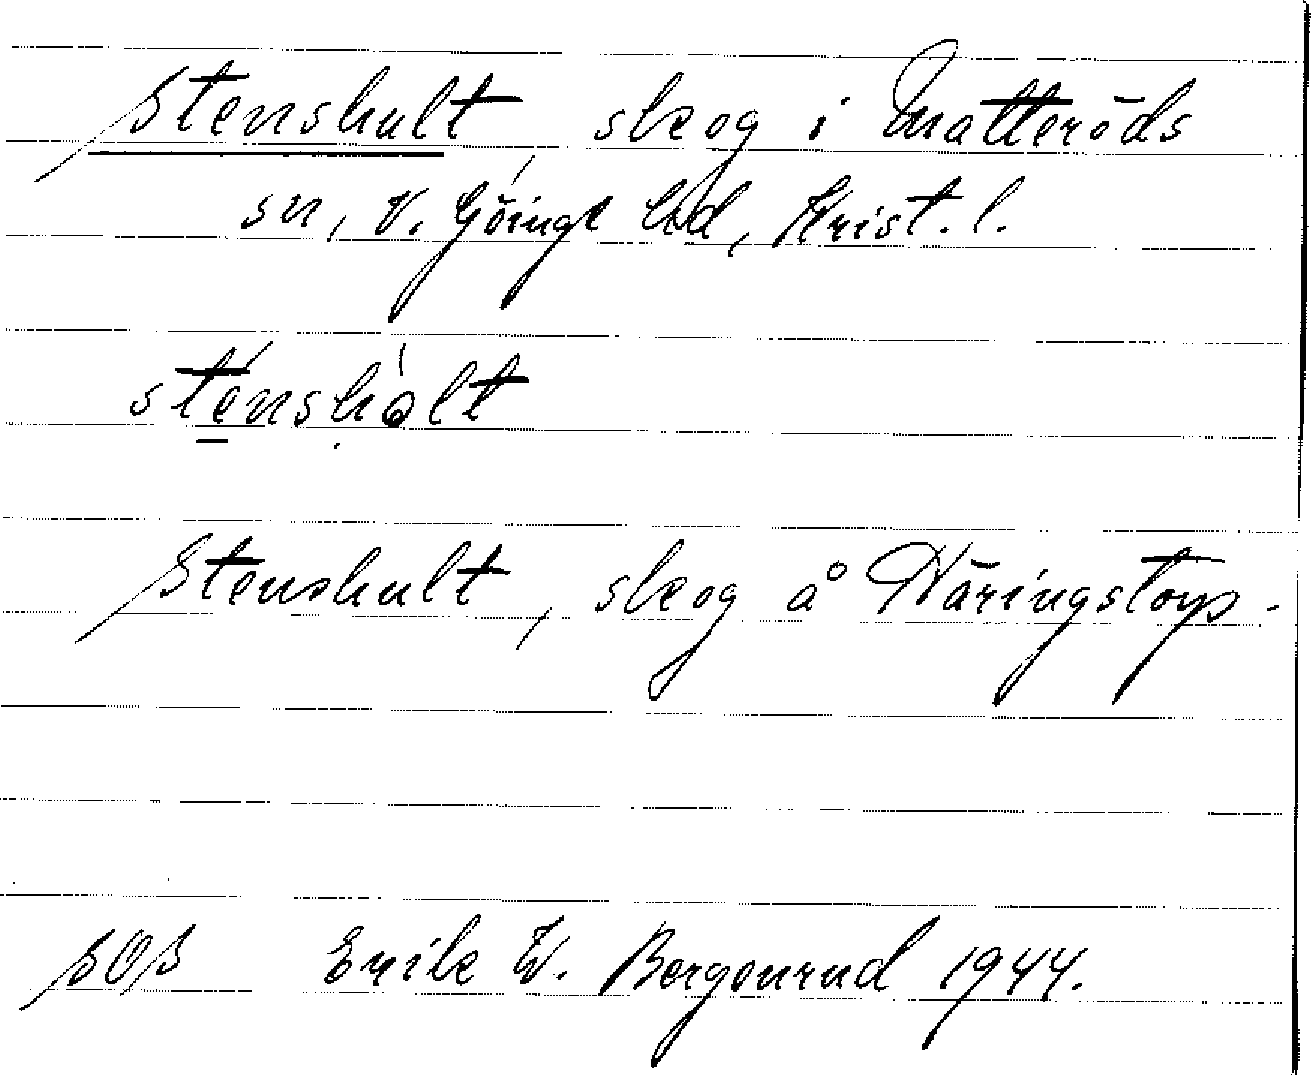 Stenshult, skog i Matteröds
sn, V. Göinge hd, Krist. l.
sténshòlt
Stenshult, skog å Näringstorp.
SOS Erik W. Bergenrud 1944.